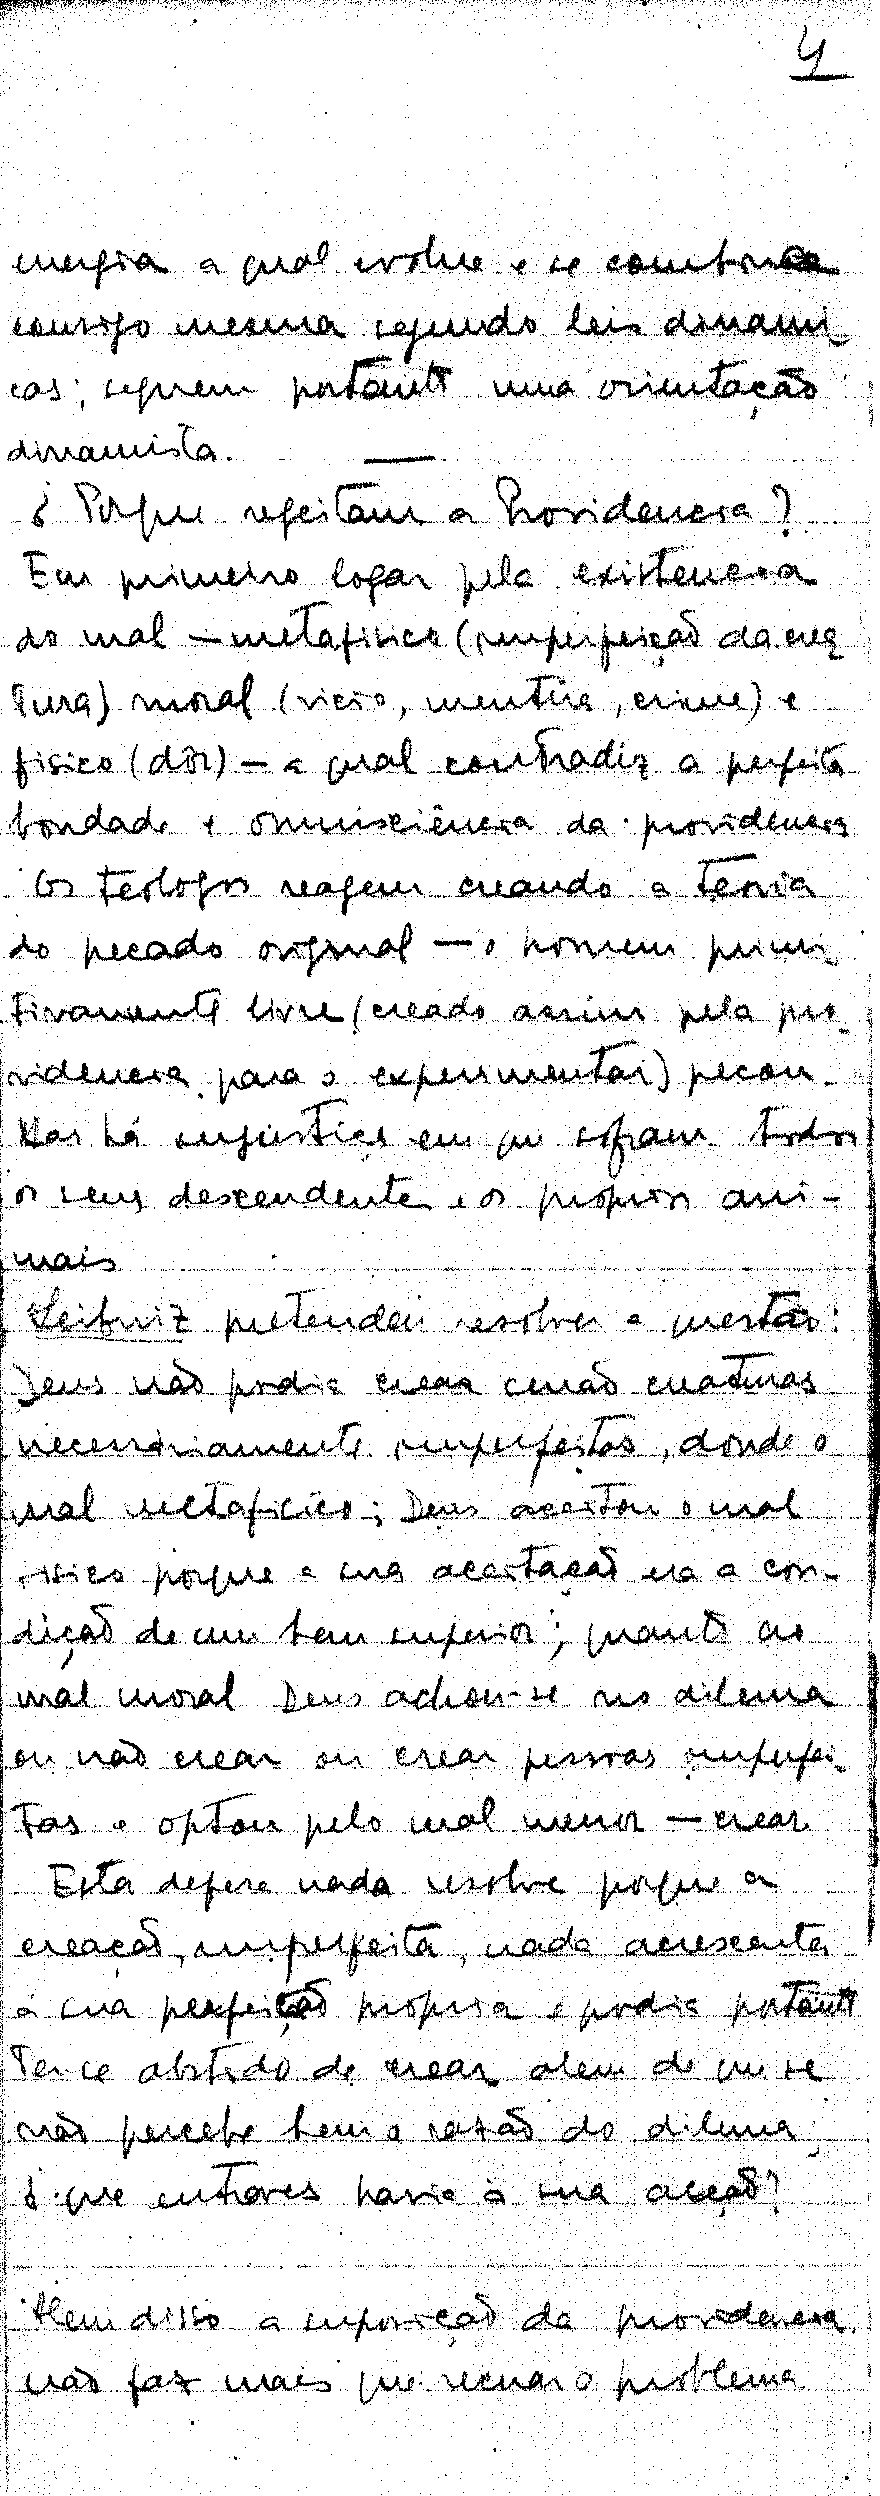 4
energia a qual evolue e se combina
consigo mesma segundo leis dinami
cas; seguem portanto uma orientação
dinamista. —
¿ Porque regeitam a Providencia?
Em primeiro logar pela existencia
do mal — metafisico (imperfeição da crea
tura) moral (vicio, mentira, crime) e
fisico (dôr) — a qual contradiz a perfeita
bondade e omnisciência da providencia
Os teologos reagem creando a teoria
do pecado original — o homem primi
tivamente livre (creado assim pela pro-
videncia para o experimentar) pecou.
Mas há injustiça em que sofram todos
os seus descendentes e os proprios ani-
mais
Leibniz pretendeu resolver a questão:
Deus não podia crear senão creaturas
necessariamente imperfeitas, donde o
mal metafisico; Deus aceitou o mal
fisico porque a sua aceitação era a con-
dição de um bem superior; quanto ao
mal moral Deus achou-se no dilema
ou não crear ou crear pessoas imperfei-
tas e optou pelo mal menor — crear.
Esta defesa nada resolve porque a
creação, imperfeita, nada acrescenta
á sua perfeição propria e podia portanto
ter-se abstido de crear alem de que se
não percebe bem a razão do dilema;
¿ que entraves havia á sua acção?
Alem disso a suposição da providencia
não faz mais que recuar o problema